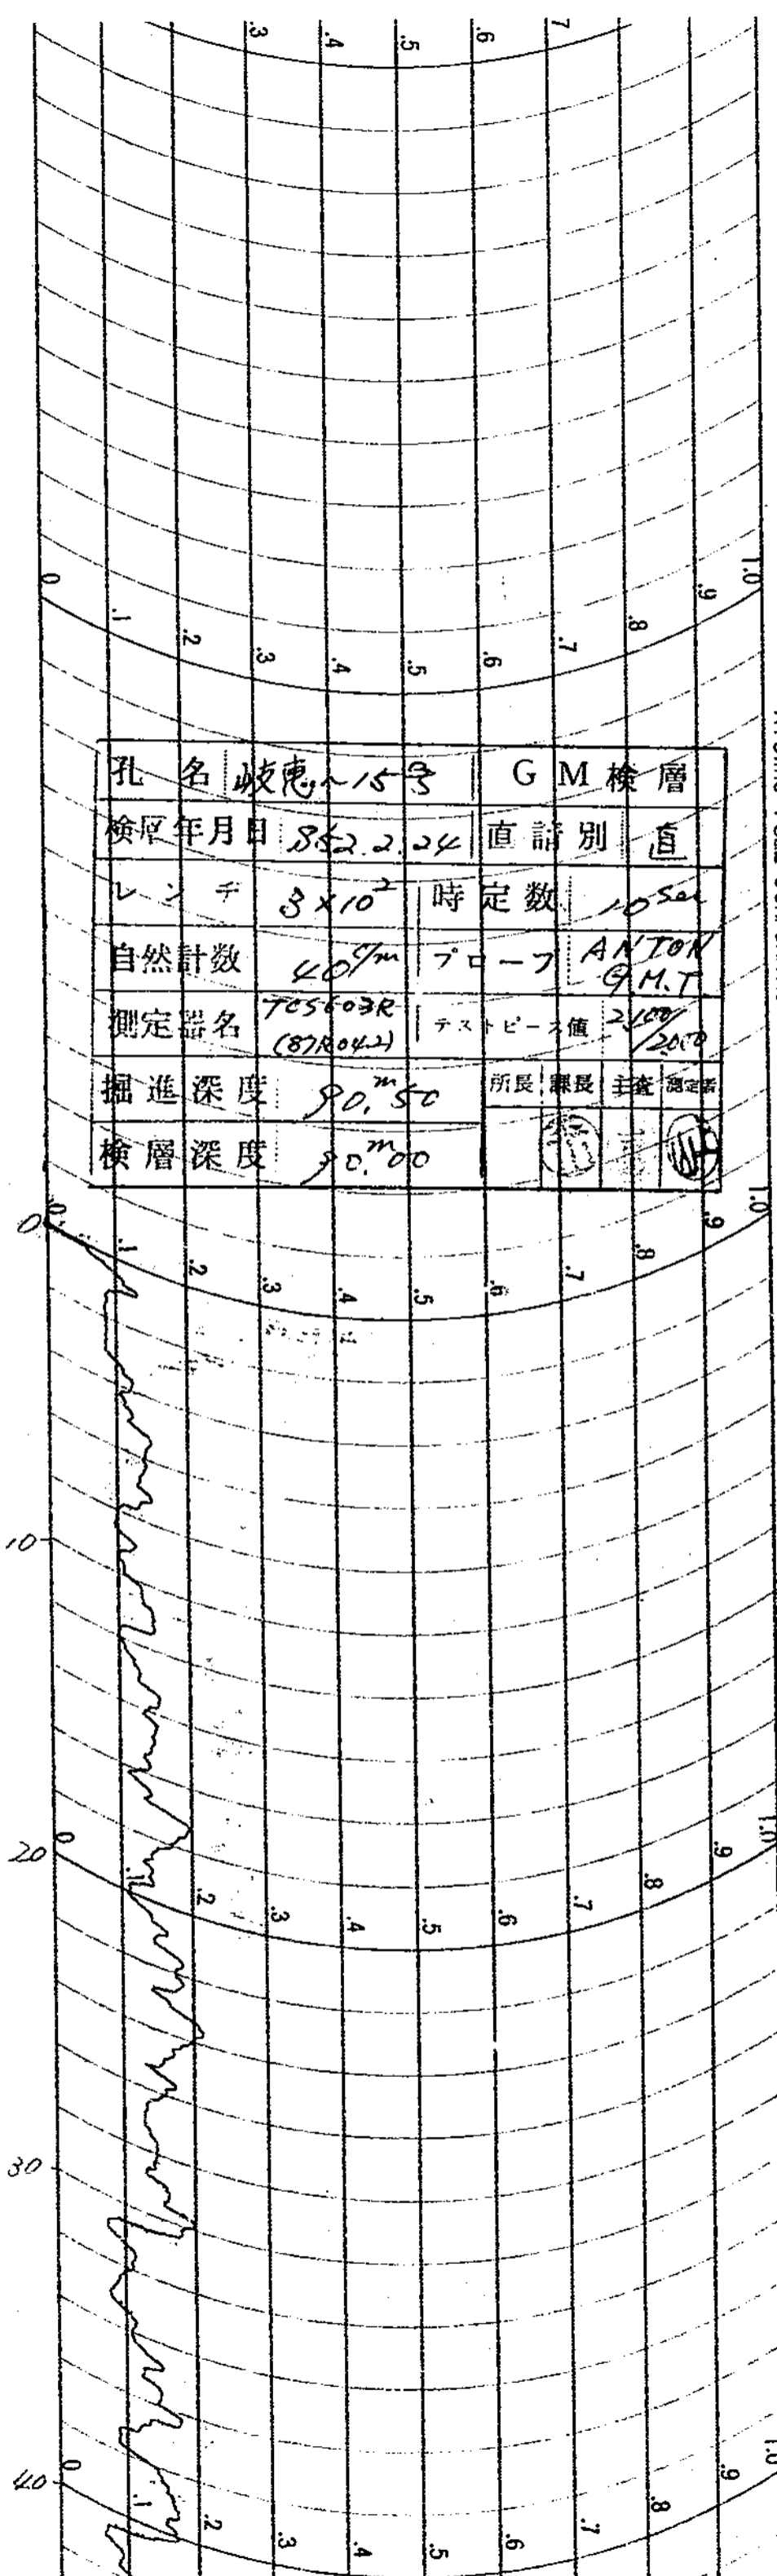 .3 .4 .5 .6 .7
0 .1 .2 .3 .4 .5 .6 .7 .8 .9 1.0
孔 名 岐恵〜15号 GM検層
検層年月日 S52.2.24 直請別 直
レンヂ 3×10² 時定数 10 sec
自然計数 40 c/m プローブ ANTON G.M.T
測定器名 TCS603R (87R042) テストピース値 2,100/2000
掘進深度 90.m50 所長 課長 主査 測定者
検層深度 90.m00
0 0 .1 .2 .3 .4 .5 .6 .7 .8 .9 1.0
10
20 0 .1 .2 .3 .4 .5 .6 .7 .8 .9 1.0
30
40 0 .1 .2 .3 .4 .5 .6 .7 .8 .9 1.0